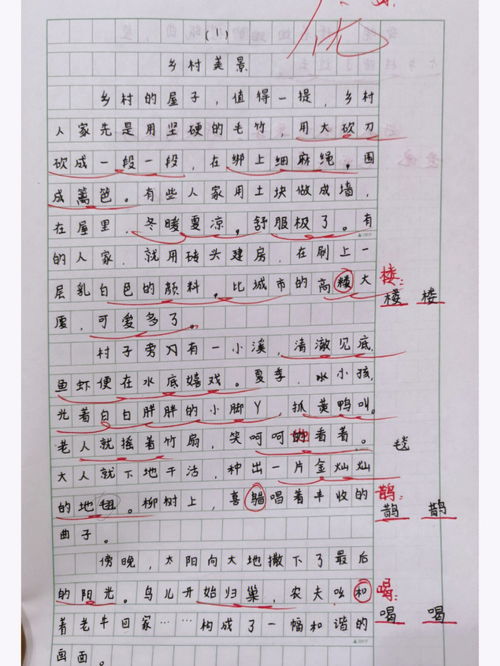 优
(1)
乡村美景
乡村的屋子，值得一提，乡村
人家先是用坚硬的毛竹，用大砍刀
砍成一段一段，在绑上细麻绳，围
成篱笆。有些人家用土块做成墙，
在屋里，冬暖夏凉，舒服极了。有
的人家，就用砖头建房，在刷上一
层乳白色的颜料，比城市的高楼大 楼：
厦，可爱多了。 楼 楼
村子旁有一小溪，清澈见底，
鱼虾便在水底嬉戏。夏季，小孩，
光着白白胖胖的小脚丫，抓黄鸭叫。
老人就摇着竹扇，笑呵呵的看着。 毯
大人就下地干活，种出一片金灿灿
的地毯。柳树上，喜鹊唱着丰收的 鹊：
曲子。 鹊 鹊
傍晚，太阳向大地撒下了最后
的阳光。鸟儿开始归巢，农夫吆和 喝：
着老牛回家……构成了一幅和谐的 喝 喝
画面。